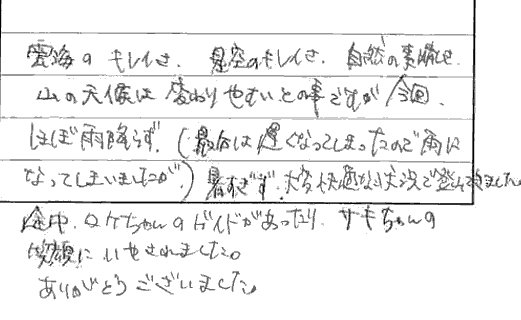 雲海のキレイさ、星空のキレイさ、自然の素晴しさ。
山の天候は変わりやすいとの事ですが今回、
ほぼ雨降らず、(最後は遅くなってしまったので雨に
なってしまいましたが。)暑すぎず、大変快適な状況で登山できました。
途中、ロケちゃんのガイドがあったり、サキちゃんの
笑顔にいやされました。
ありがとうございました。